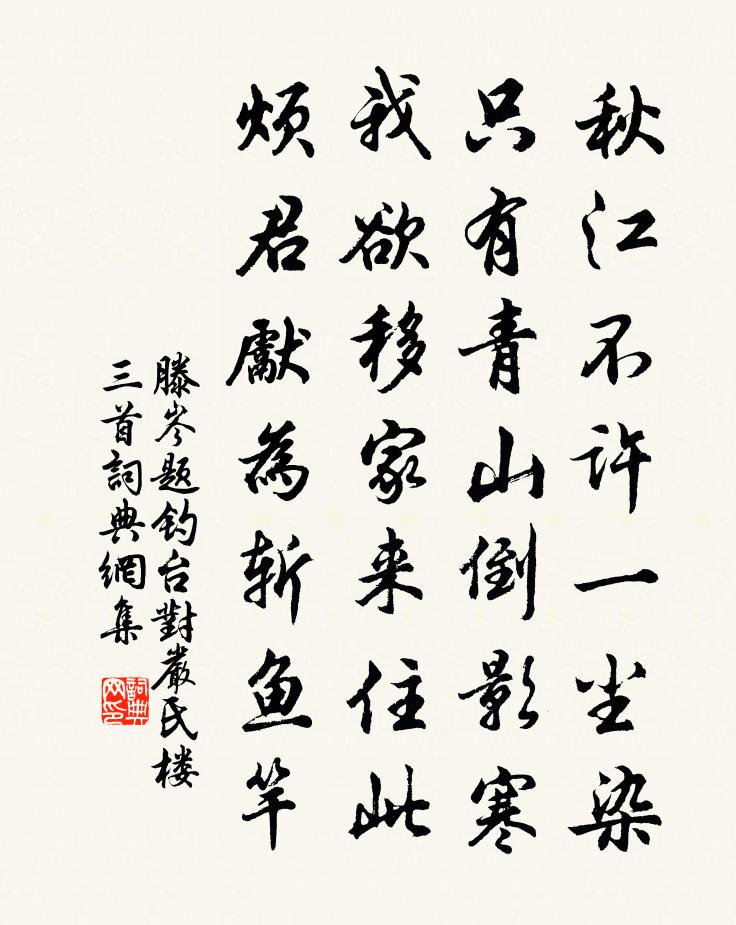 秋江不许一尘染
只有青山倒影寒
我欲移家来住此
烦君献為斩鱼竿
滕岑题钓台對嚴民楼
三首詞典網集
詞典
网印